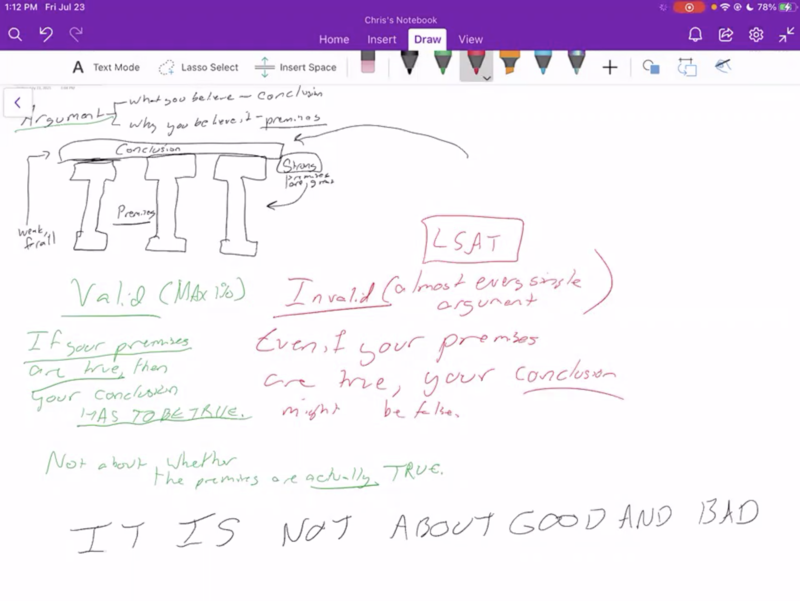 1:12 PM Fri Jul 23
78%
Chris's Notebook
Home Insert Draw View
Text Mode Lasso Select Insert Space
Argument
what you believe - conclusion
why you believe it - premises
Conclusion
Strong
premises
are great
Premises
weak,
frail
LSAT
Valid (MAX 1%)
Invalid (almost every single
argument
If your premises
are true, then
your conclusion
HAS TO BE TRUE.
Even if your premises
are true, your conclusion
might be false.
Not about whether
the premises are actually TRUE.
IT IS NOT ABOUT GOOD AND BAD